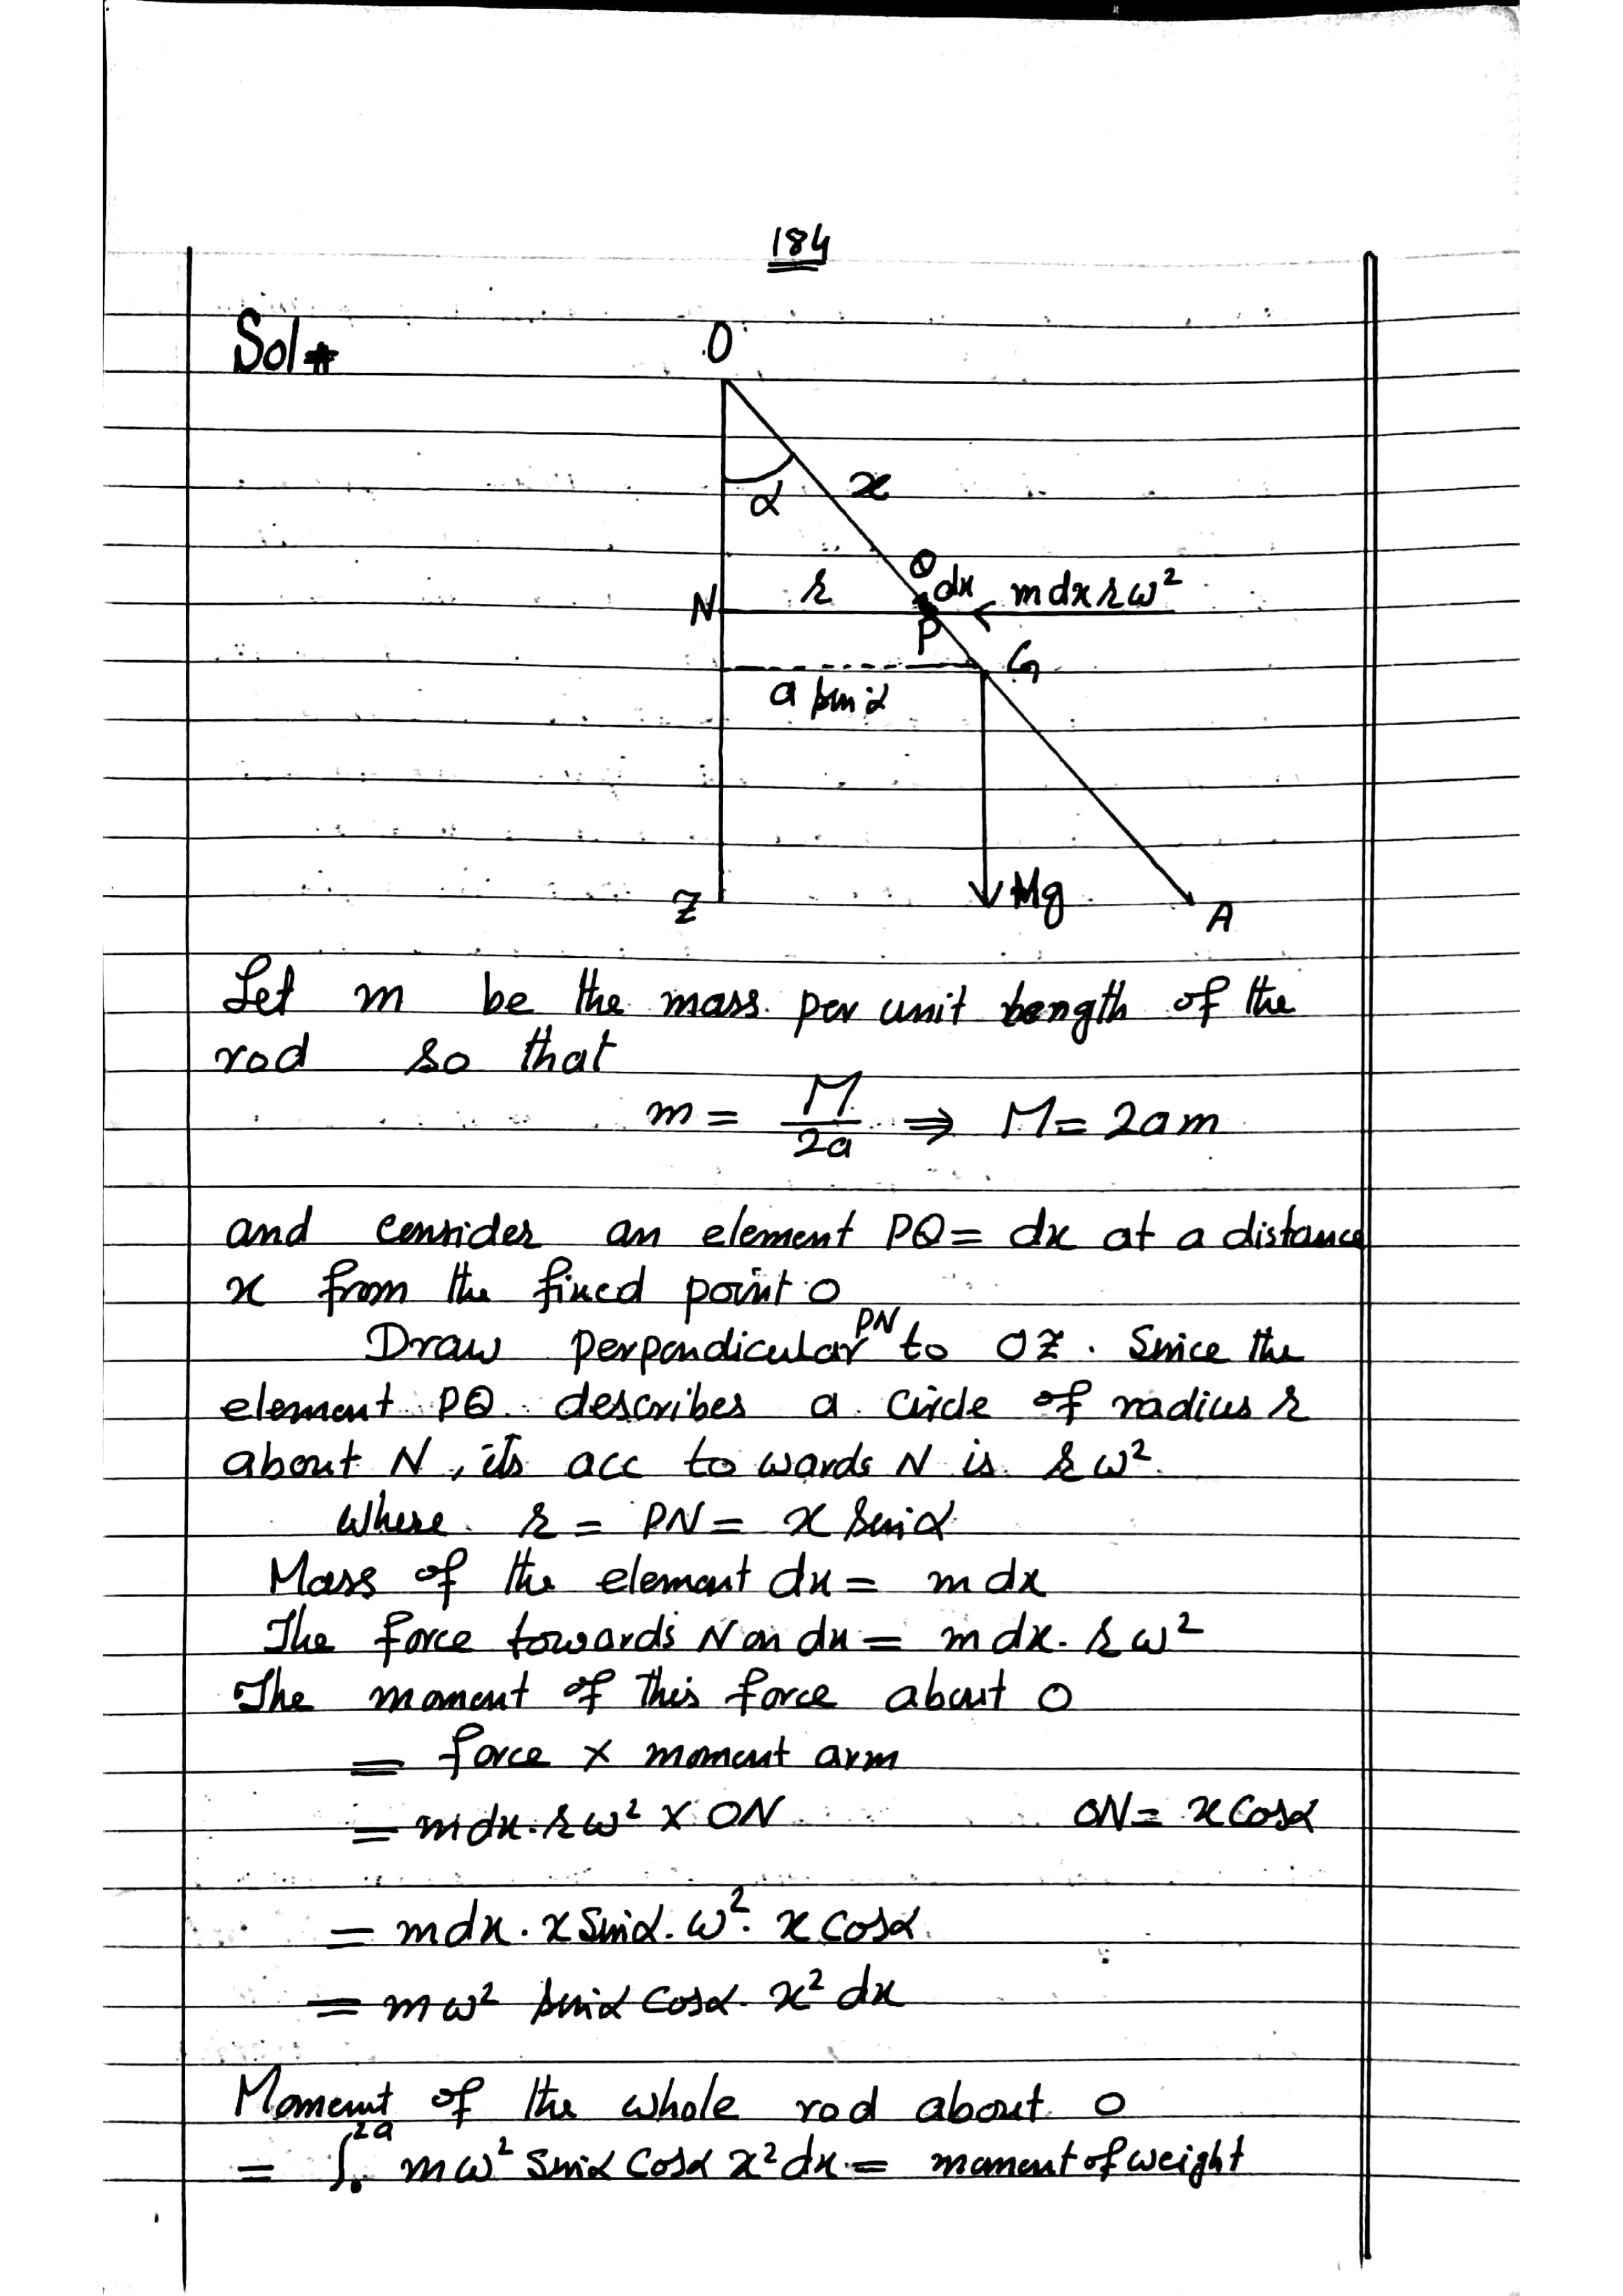 184
Sol
O
α
x
Q
dx
mdxrω²
N
r
P
G
a sinα
Mg
Z
A
Let m be the mass per unit length of the
rod so that
m = M/2a ⇒ M = 2am
and consider an element PQ = dx at a distance
x from the fixed point O
Draw perpendicular PN to OZ. Since the
element PQ describes a circle of radius r
about N, its acc to wards N is rω².
Where r = PN = x sinα
Mass of the element dx = mdx
The force towards N on dx = mdx. rω²
The moment of this force about O
= force × moment arm
= mdx. rω² × ON ON = x Cosα
= mdx. x Sinα. ω². x Cosα.
= mω² sinα Cosα. x² dx
Moment of the whole rod about O
= ∫₀²ᵃ mω² Sinα Cosα x² dx = moment of weight